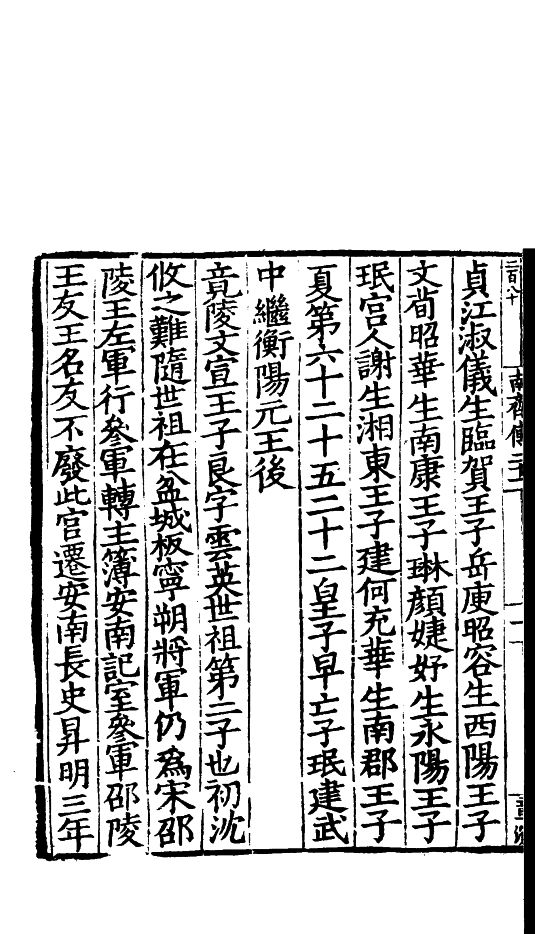 貞江淑儀生臨賀王子岳庾昭容生西陽王子
文荀昭華生南康王子琳顏婕妤生永陽王子
珉宮人謝生湘東王子建何充華生南郡王子
夏第六十二十五二十二皇子早亡子珉建武
中繼衡陽元王後
竟陵文宣王子良字雲英世祖第二子也初沈
攸之難隨世祖在盆城板寧朔將軍仍爲宋邵
陵王左軍行參軍轉主簿安南記室參軍邵陵
王友王名友不廢此官遷安南長史昇明三年